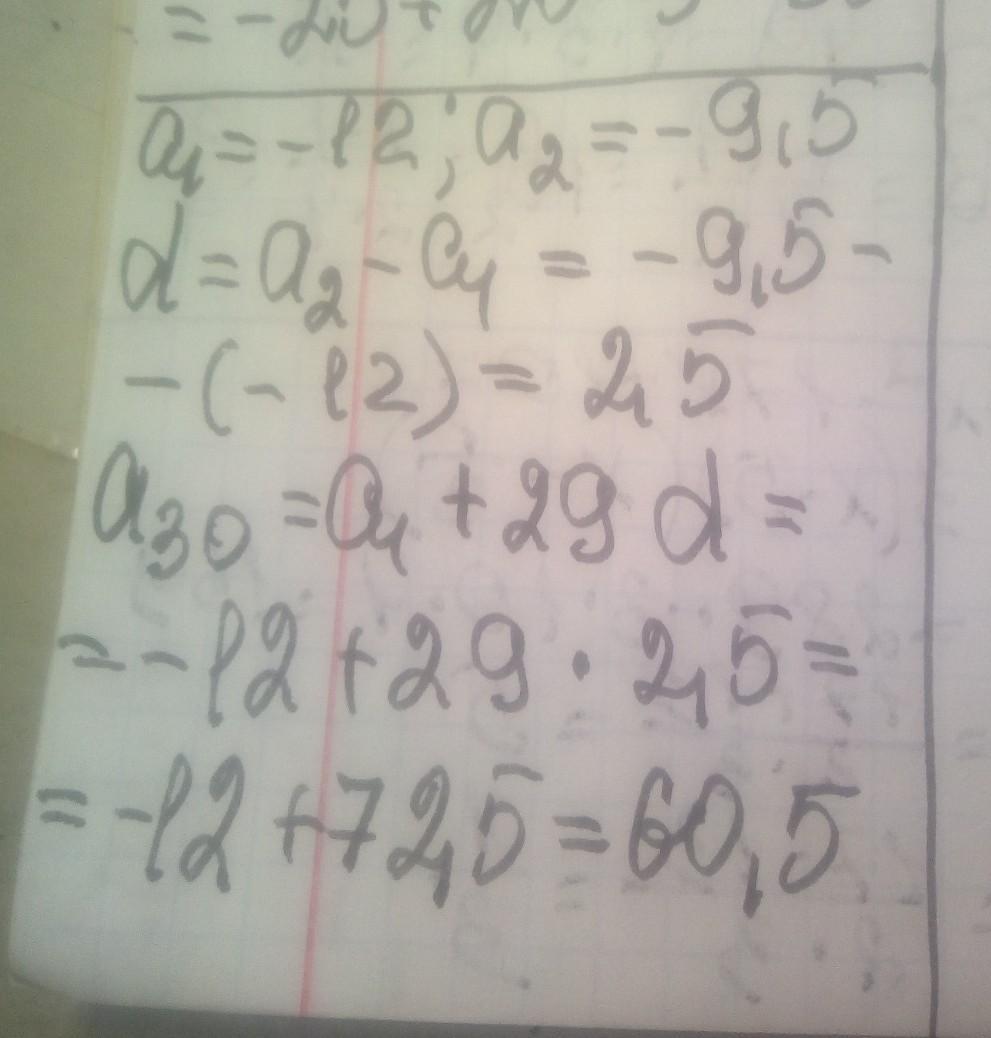 a₁ = -12; a₂ = -9,5
d = a₂ - a₁ = -9,5 -
- (-12) = 2,5
a₃₀ = a₁ + 29 d =
= -12 + 29 · 2,5 =
= -12 + 72,5 = 60,5